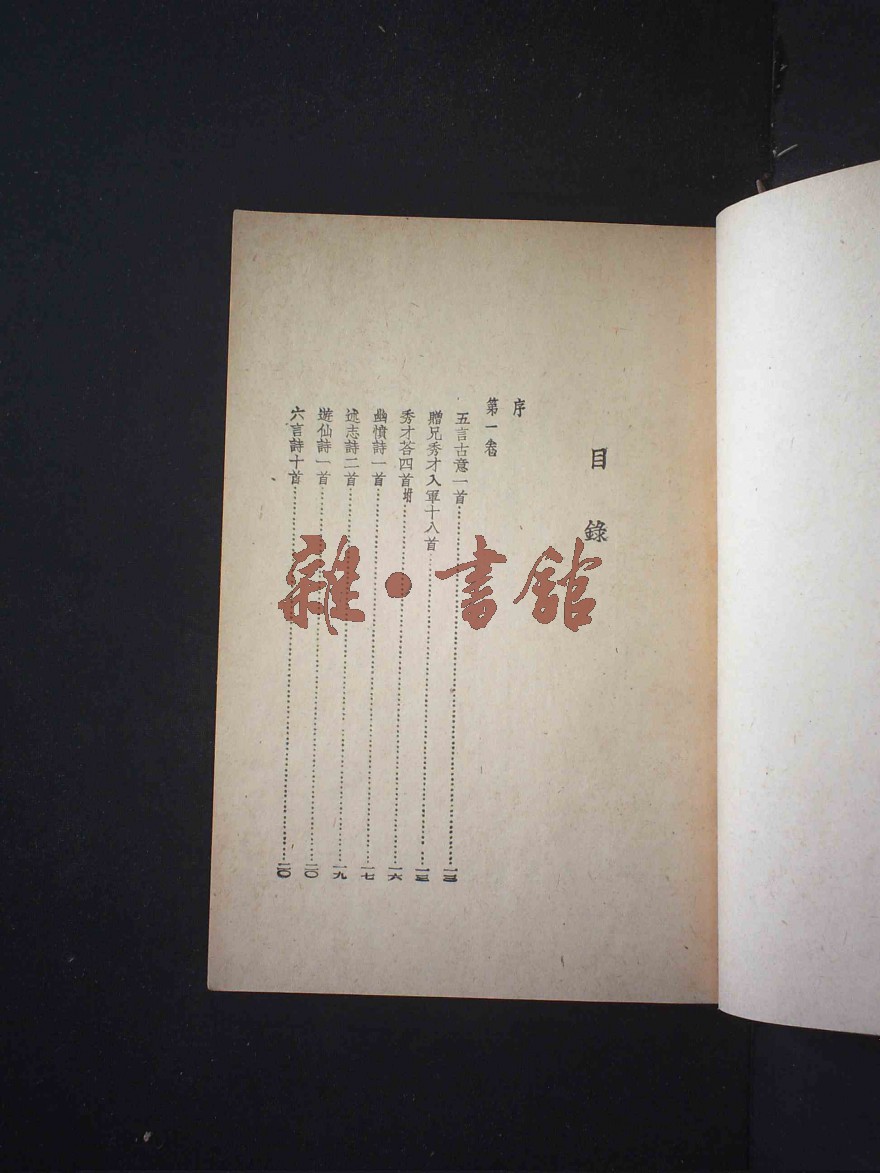 目錄
序
第一卷
五言古意一首……一三
贈兄秀才入軍十八首……一三
秀才荅四首附……一六
幽憤詩一首……一七
述志詩二首……一九
遊仙詩一首……二〇
六言詩十首……二〇
雜·書館